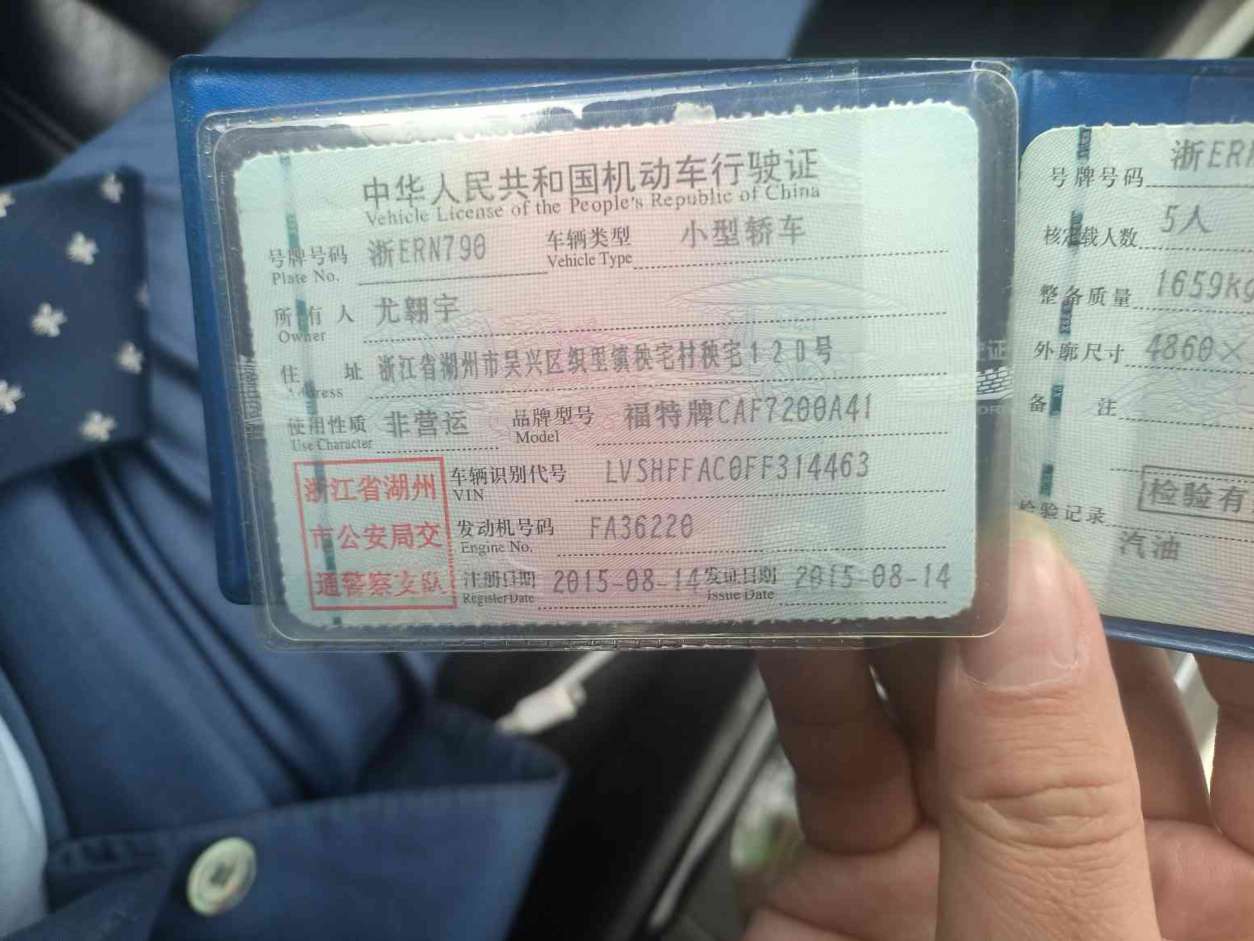 中华人民共和国机动车行驶证
Vehicle License of the People's Republic of China
号牌号码 浙ERN790 车辆类型 小型轿车
Plate No. Vehicle Type
所有人 尤翱宇
Owner
住址 浙江省湖州市吴兴区织里镇秧宅村秧宅120号
Address
使用性质 非营运 品牌型号 福特牌CAF7200A41
Use Character Model
浙江省湖州
市公安局交
通警察支队
车辆识别代号 LVSHFFAC0FF314463
VIN
发动机号码 FA36220
Engine No.
注册日期 2015-08-14 发证日期 2015-08-14
Register Date Issue Date
号牌号码 浙ER
核定载人数 5人
整备质量 1659kg
外廓尺寸 4860×
备注
检验有
检验记录
汽油